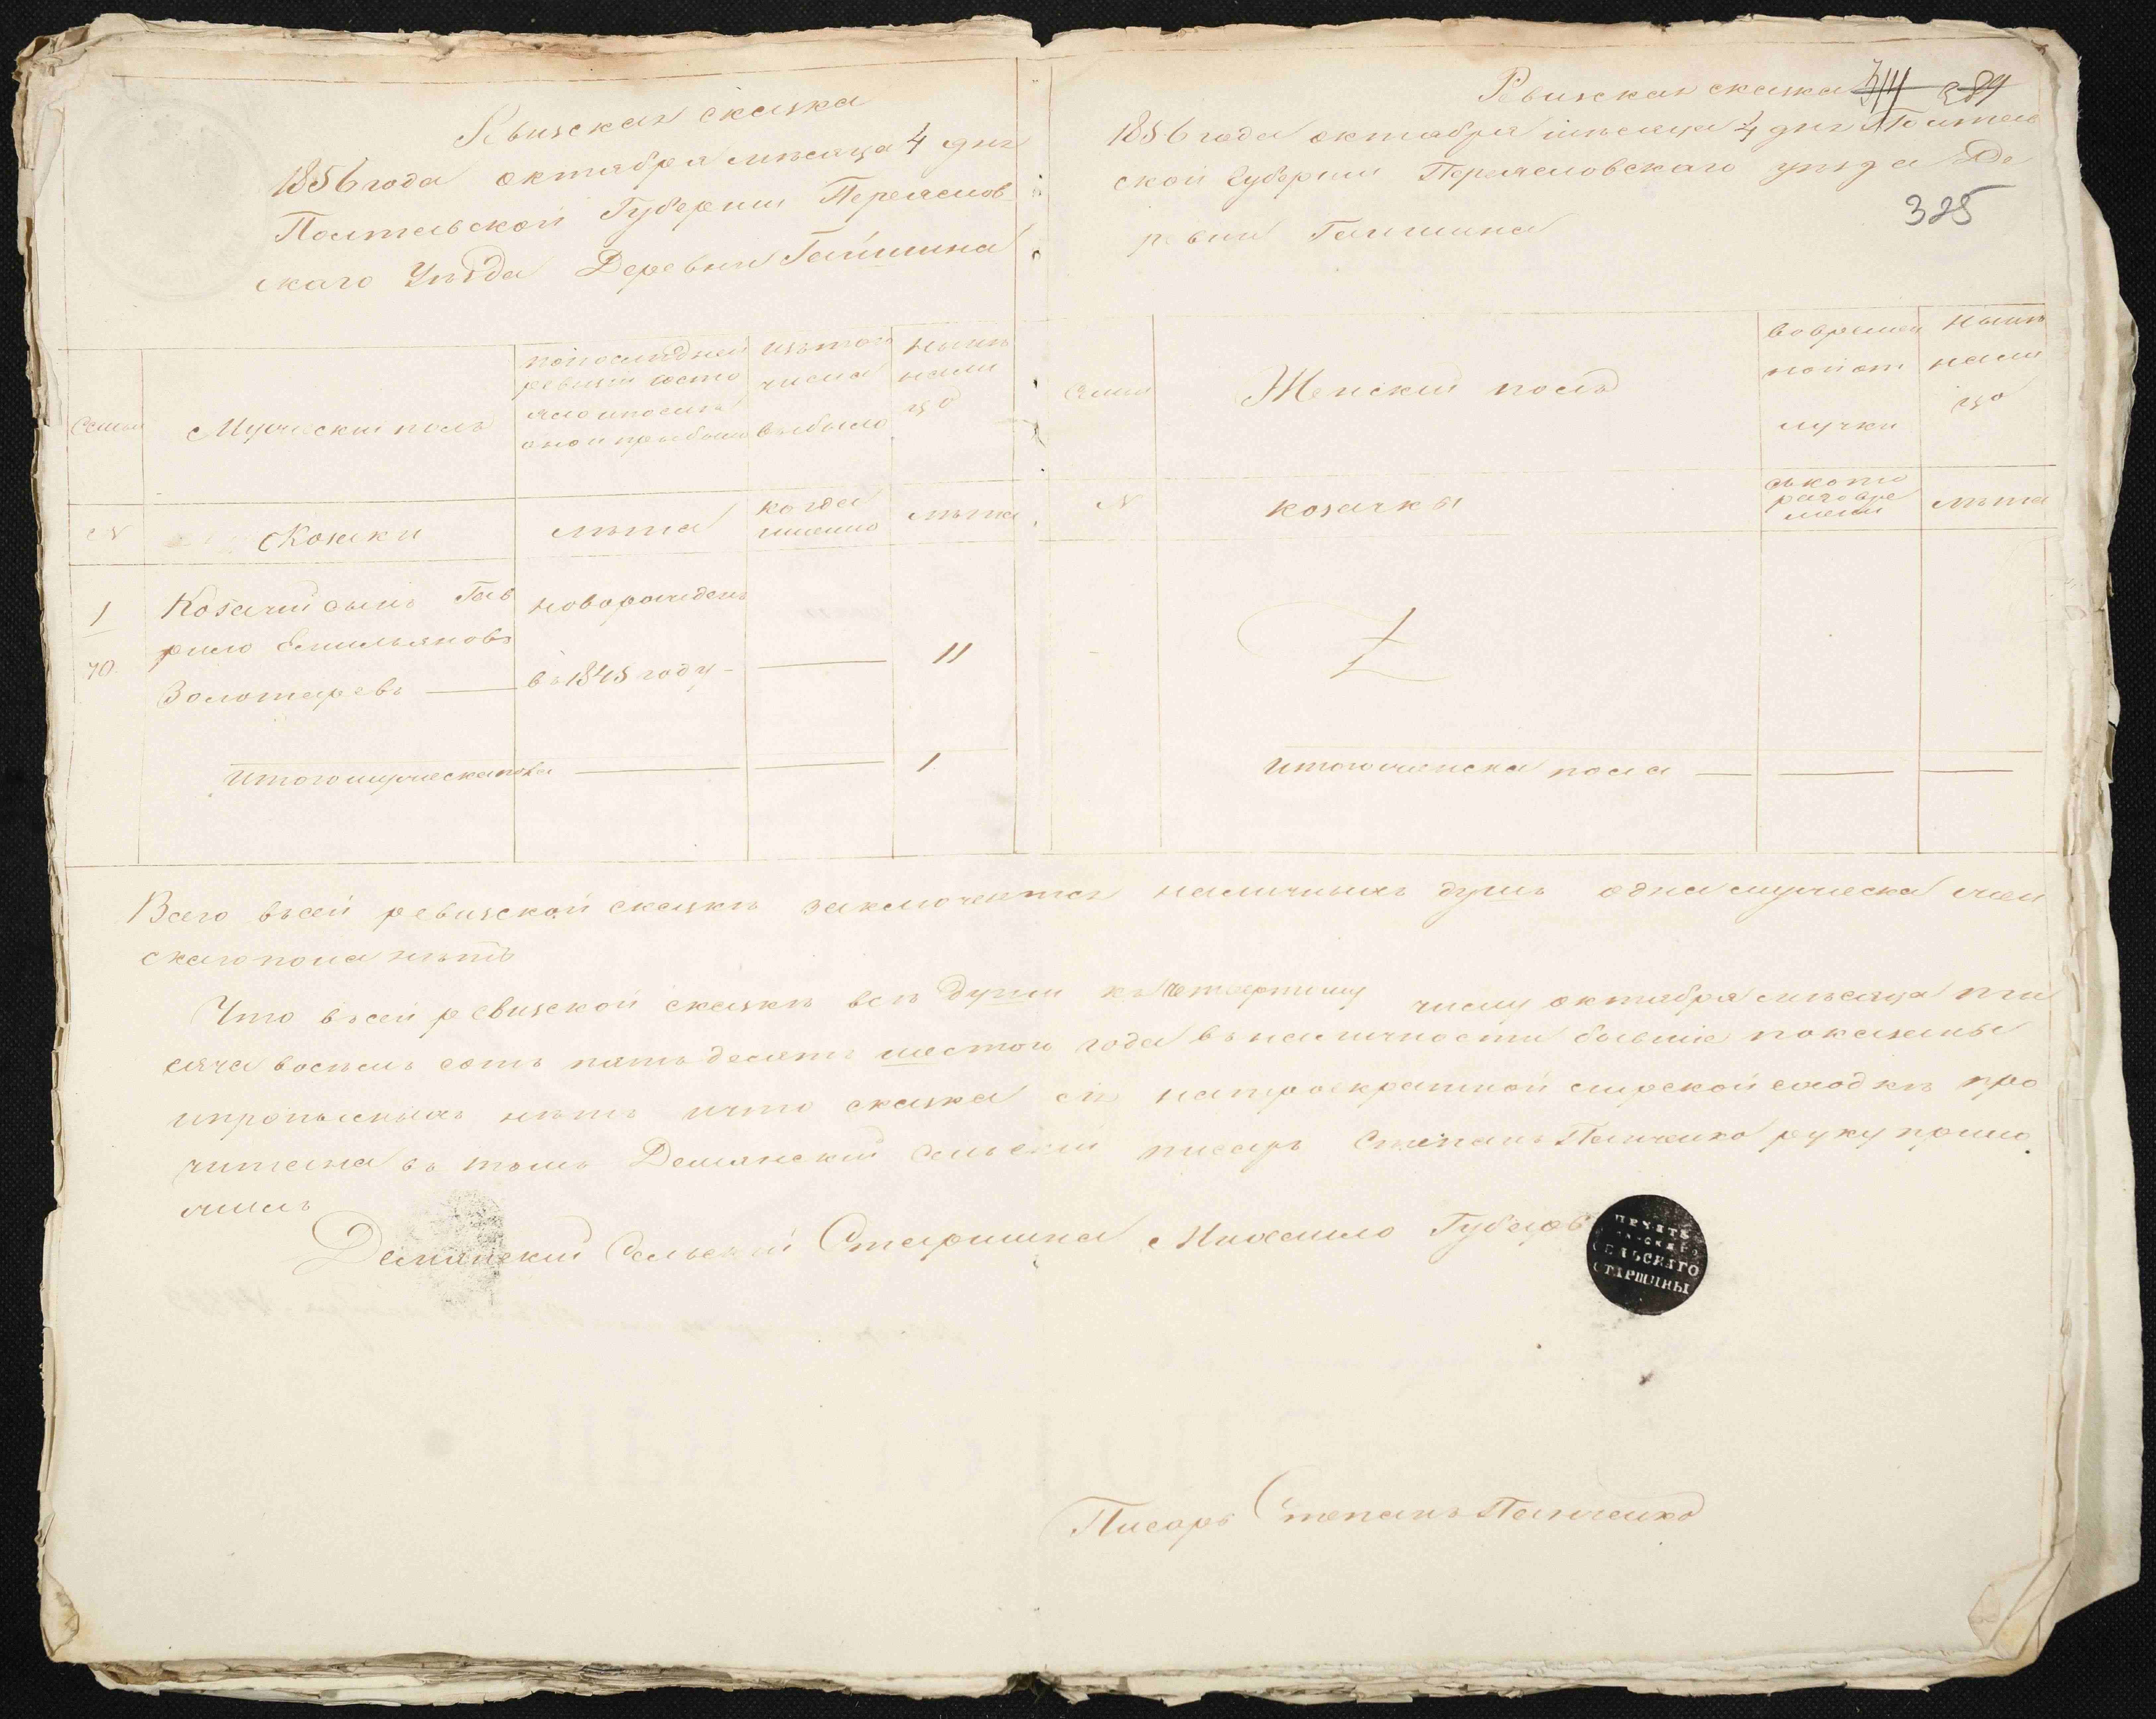 Ревизская сказка
1856 года октября мѣсяца 4 дня
Полтавской Губернии Переяслов
скаго Уѣзда Деревни Гайшина
Семьи
Мужеский полъ
по последней
ревизии состо
яло и после
оной прибыло
изъ того
числа
выбыло
ныне
нали
цо
N
Козаки
лѣта
когда
именно
лѣта
1
70
Козачий сынъ Гав
рило Емильяновъ
Золотаревъ
новорожденъ
въ 1845 году
11
Итого мужеска пола
1
Ревизская сказка 384
1856 года октября мѣсяца 4 дня Полтав
ской Губернии Переясловскаго уѣзда Де
ревни Гайшина
325
Семьи
Женский полъ
во времен
ной от
лучки
ныне
нали
цо
N
козачкы
съ кото
раго вре
мени
лѣта
Итого женска пола
Всего въ сей ревизской сказкѣ заключается наличныхъ душъ одна мужеска жен
скаго пола нѣтъ
Что въ сей ревизской сказкѣ всѣ души къ четвертому числу октября мѣсяца ты
сяча восемь сотъ пятьдесятъ шестого года въ наличности бывшие показаны
и прописныхъ нѣтъ и что сказка сия на троекратной мирской сходкѣ про
читана въ томъ Демянский Сельский писарь Степанъ Панченко руку прило
жилъ
Демянский Сельский Старшина Михаило Губаръ
ПЕЧАТЬ
СЕЛЬСКАГО
СТАРШИНЫ
Писарь Степанъ Панченко